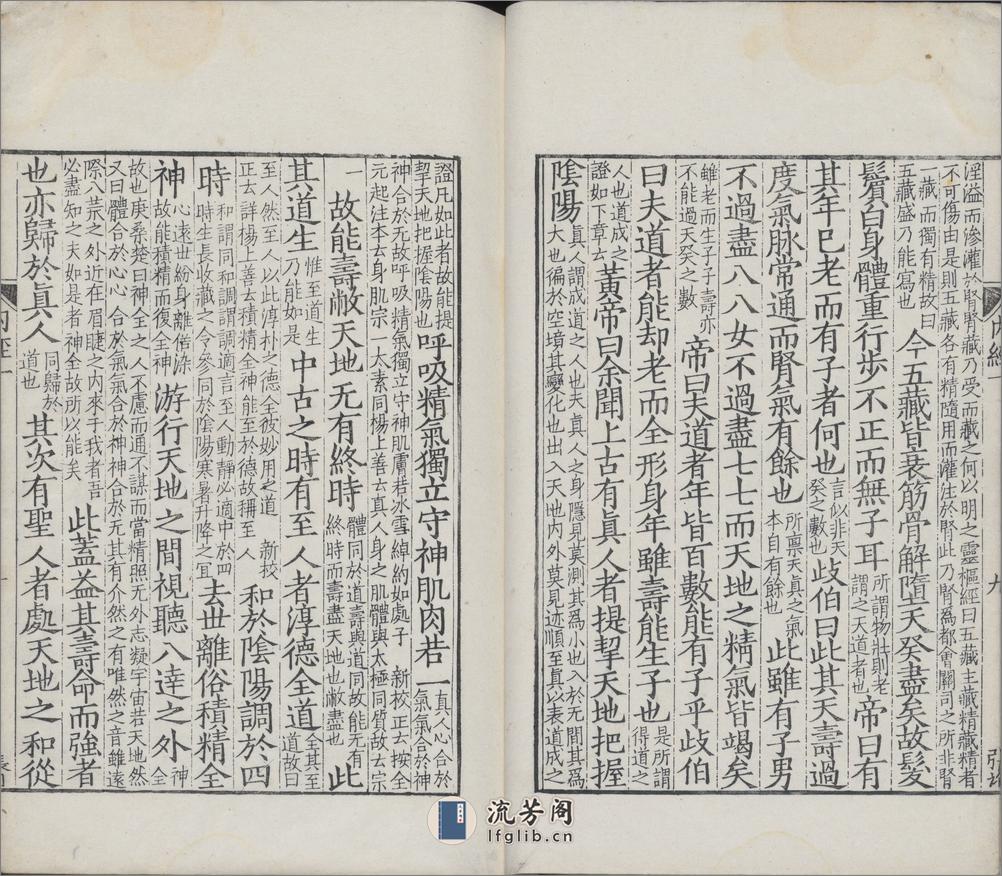 淫溢而滲灌於腎腎藏乃受而藏之何以明之靈樞經曰五藏主藏精藏精者
不可傷由是則五藏各有精隨用而灌注於腎此乃腎爲都會關司之所非腎
一藏而獨有精故曰五藏盛乃能寫也今五藏皆衰筋骨解墮天癸盡矣故髮
鬢白身體重行步不正而無子耳所謂物壯則老謂之天道者也帝曰有
其年已老而有子者何也言似非天癸之數也歧伯曰此其天壽過
度氣脉常通而腎氣有餘也所禀天真之氣本自有餘也此雖有子男
不過盡八八女不過盡七七而天地之精氣皆竭矣
雖老而生子子壽亦不能過天癸之數帝曰夫道者年皆百數能有子乎歧伯
曰夫道者能却老而全形身年雖壽能生子也是所謂得道之
人也道成之證如下章云黃帝曰余聞上古有眞人者提挈天地把握
陰陽真人謂成道之人也夫真人之身隱見莫測其爲小也入於无間其爲大也徧於空境其變化也出入天地内外莫見迹順至真以表道成之
内經一
九
證凡如此者故能提挈天地把握陰陽也呼吸精氣獨立守神肌肉若一真人心合於氣氣合於神
神合於无故呼吸精氣獨立守神肌膚若冰雪綽約如處子 新校正云按全
元起注本云身肌宗一太素同楊上善云真人身之肌體與太極同質故云宗
一故能壽敝天地无有終時體同於道壽與道同故能无有終時而壽盡天地也敝盡也此
其道生惟至道生乃能如是中古之時有至人者淳德全道全其至道故曰
至人然至人以此淳朴之德全彼妙用之道 新校正云詳楊上善云積精全神能至於德故稱至人和於陰陽調於四
時和謂同和調謂調適言至人動靜必適中於四時生長收藏之令參同於陰陽寒暑升降之宜去世離俗積精全
神心遠世紛身離俗染故能積精而復全神游行天地之間視聽八達之外神全
故也庚桑楚曰神全之人不慮而通不謀而當精照无外志凝宇宙若天地然
又曰體合於心心合於氣氣合於神神合於无其有介然之有唯然之音雖遠
際八荒之外近在眉睫之内來于我者吾必盡知之夫如是者神全故所以能矣此蓋益其壽命而強者
也亦歸於眞人同歸於道也其次有聖人者處天地之和從
流芳阁
lfglib.cn